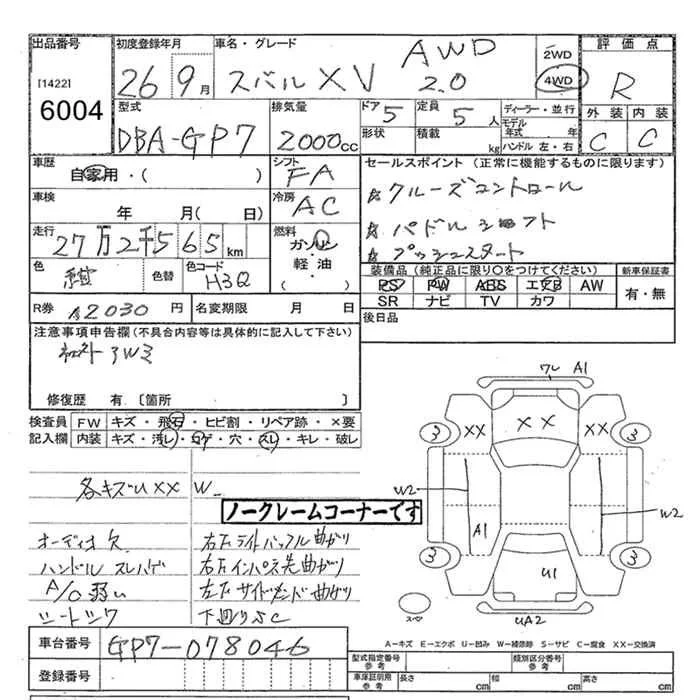 出品番号 初度登録年月 車名・グレード 2WD 評価点
[1422] 26年9月 スバル XV AWD 2.0 4WD R
6004 外装 内装
C C
型式 排気量 ドア 定員 ディーラー・並行
DBA-GP7 2000cc 5 5人 モデル年式 年
形状 積載 kg ハンドル 左・右
車歴 シフト セールスポイント (正常に機能するものに限ります)
自家用・( ) FA ☆クルーズコントロール
車検 冷房 ☆パドルシフト
年 月( 日) AC ☆プッシュスタート
走行 燃料
27万2千565km ガソリン
軽油
( )
色 紺 色替 色コード H3Q
装備品 (純正品に限り○をつけてください) 新車保証書
PS PW ABS エアB AW 有・無
SR ナビ TV カワ
R券 12030円 名変期限 月 日 後日品
注意事項申告欄(不具合内容等は具体的に記入して下さい)
修復歴 有 〔箇所 〕
検査員 FW キズ・飛石・ヒビ割・リペア跡・×要
記入欄 内装 キズ・汚レ・コゲ・穴・スレ・キレ・破レ
各キズUXX W
ノークレームコーナーです
オーディオ欠 右下ライトバッフル曲がり
ハンドル スレハゲ 右下インパネ先曲がり
A/C弱い 左下サイドメンバ曲がり
シートシワ 下回りSC
ワレ A1
XX XX XX
3 3
W2 W2
A1
U1
3 3
スペア
UA2
A−キズ E−エクボ U−凹み W−補修跡 S−サビ C−腐食 XX−交換済
車台番号 GP7-078046
型式指定番号 参考 類別区分番号 参考
登録番号 車庫証明用 参考 長さ cm 幅 cm 高さ cm